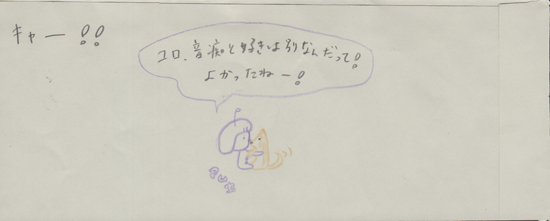 キャー!!
コロ、音痴と好きは別なんだって!
よかったねー!